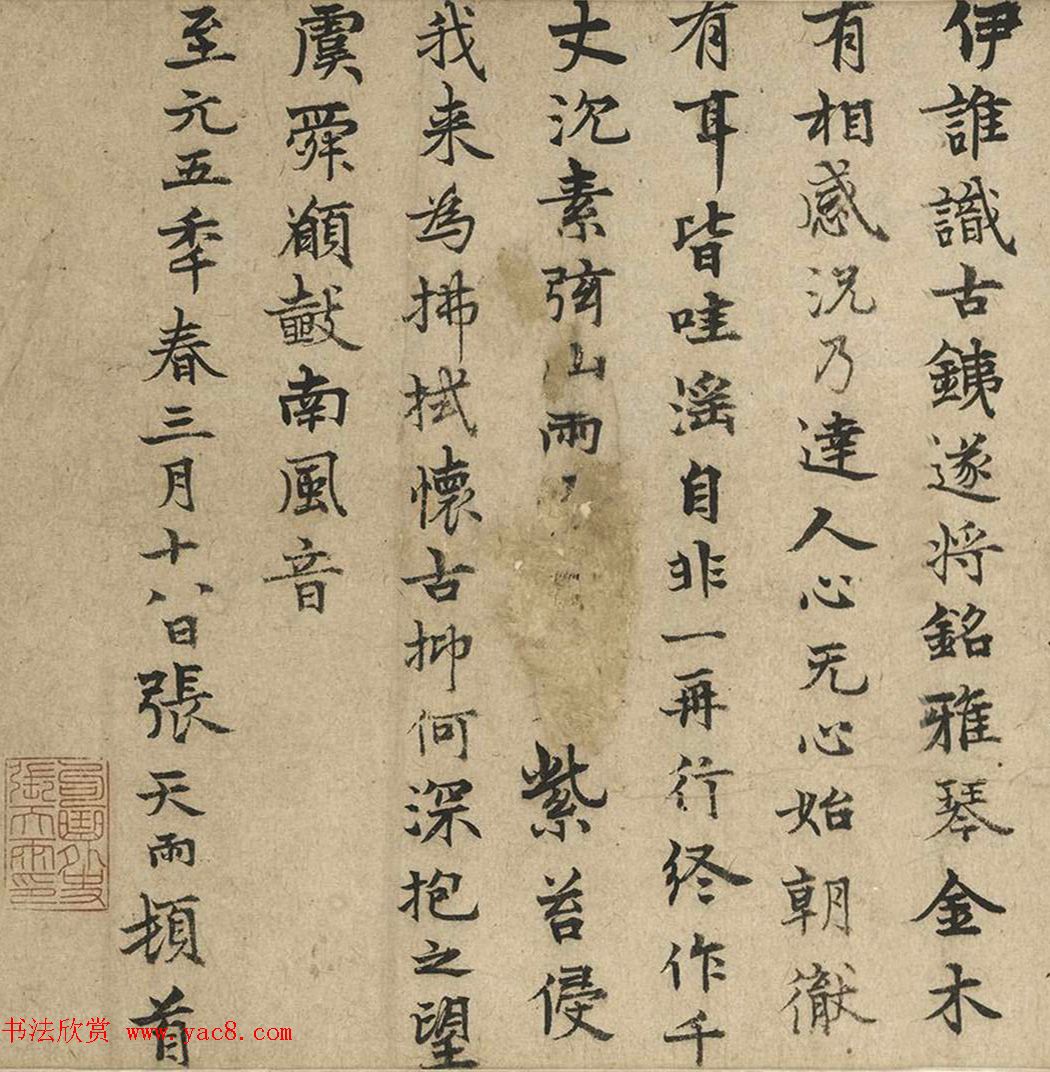 伊誰識古銕遂将銘雅琴金木
有相感況乃達人心无心始朝徹
有耳皆哇滛自非一再行终作千
丈沉素弦山雨紫苔侵
我来為拂拭懐古抑何深抱之望
虞舜願鼓南風音
至元五年春三月十八日張天雨頓首
书法欣赏 www.yac8.com